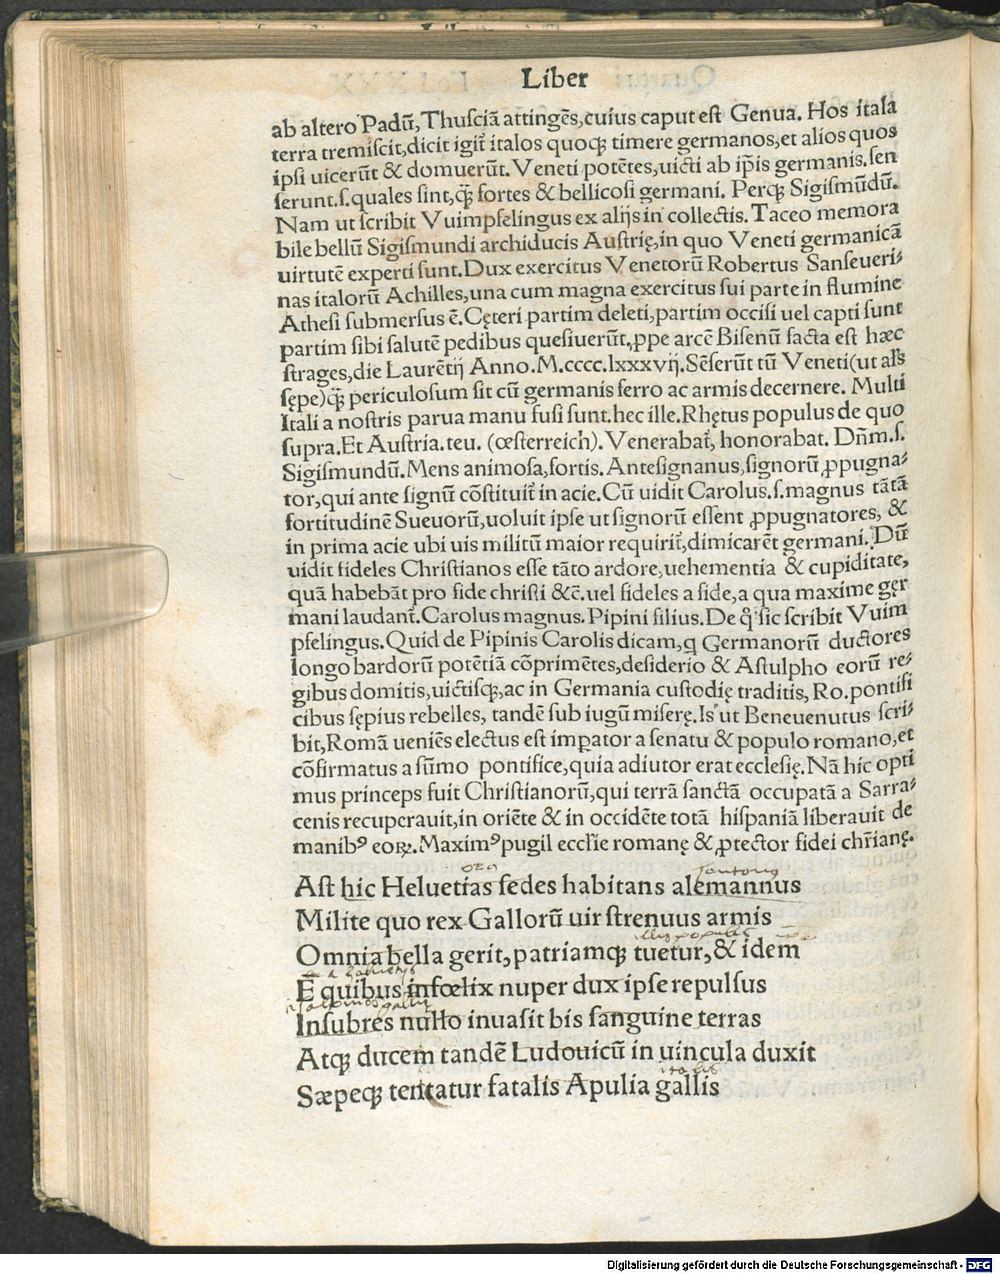 Liber
ab altero Padū, Thuſciā attingēs, cuius caput eſt Genua. Hos itala
terra tremiſcit, dicit igit̄ italos quoqꝫ timere germanos, et alios quos
ipſi uicerūt & domuerūt. Veneti potētes, uicti ab ip̄is germanis. ſen
ſerunt. ſ. quales ſint, q̄ꝫ fortes & bellicoſi germani. Perqꝫ Sigiſmūdū.
Nam ut ſcribit Vuimpſelingus ex alijs in collectis. Taceo memora
bile bellū Sigiſmundi archiducis Auſtrię, in quo Veneti germanicā
uirtutē experti ſunt. Dux exercitus Venetorū Robertus Sanſeueri⸗
nas italorū Achilles, una cum magna exercitus ſui parte in flumine
Atheſi ſubmerſus ē. Cęteri partim deleti, partim occiſi uel capti ſunt
partim ſibi ſalutē pedibus queſiuerūt, ꝓpe arcē Biſenū facta eſt hæc
ſtrages, die Laurētij Anno. M. cccc. lxxxvij. Sēſerūt tū Veneti (ut al's
ſępe) q̄ꝫ periculoſum ſit cū germanis ferro ac armis decernere. Multi
Itali a noſtris parua manu fuſi ſunt. hec ille. Rhętus populus de quo
ſupra. Et Auſtria. teu. (œſterreich). Venerabat̄, honorabat. Dn̄m. ſ.
Sigiſmundū. Mens animoſa, fortis. Anteſignanus, ſignorū ꝓpugna⸗
tor, qui ante ſignū cōſtituit̄ in acie. Cū uidit Carolus. ſ. magnus tātā
fortitudinē Sueuorū, uoluit ipſe ut ſignorū eſſent ꝓpugnatores, &
in prima acie ubi uis militū maior requirit̄, dimicarēt germani. Dū
uidit fideles Chriſtianos eſſe tāto ardore, uehementia & cupiditate,
quā habebāt pro fide chriſti &c̄. uel fideles a fide, a qua maxime ger
mani laudant̄. Carolus magnus. Pipini filius. De qͥ ſic ſcribit Vuim
pſelingus. Quid de Pipinis Carolis dicam, q Germanorū ductores
longobardorū potētiā cōprimētes, deſiderio & Aſtulpho eorū re⸗
gibus domitis, uictiſqꝫ, ac in Germania cuſtodię traditis, Ro. pontifi
cibus ſępius rebelles, tandē ſub iugū miſerę. Is ut Beneuenutus ſcri⸗
bit, Romā ueniēs electus eſt imꝑator a ſenatu & populo romano, et
cōfirmatus a ſūmo pontifice, quia adiutor erat eccleſię. Nā hic opti
mus princeps fuit Chriſtianorū, qui terrā ſanctā occupatā a Sarra⸗
cenis recuperauit, in oriēte & in occidēte totā hiſpaniā liberauit de
manibꝰ eoꝝ. Maximꝰ pugil eccl'ie romanę & ꝓtector fidei chr̄ianę.
Aſt hic Heluetias ſedes habitans alemannus
Milite quo rex Gallorū uir ſtrenuus armis
Omnia bella gerit, patriamqꝫ tuetur, & idem
E quibus infœlix nuper dux ipſe repulſus
Inſubres nullo inuaſit bis ſanguine terras
Atqꝫ ducem tandē Ludouicū in uincula duxit
italis
Sæpeqꝫ tentatur fatalis Apulia gallis
Digitalisierung gefördert durch die Deutsche Forschungsgemeinschaft - DFG